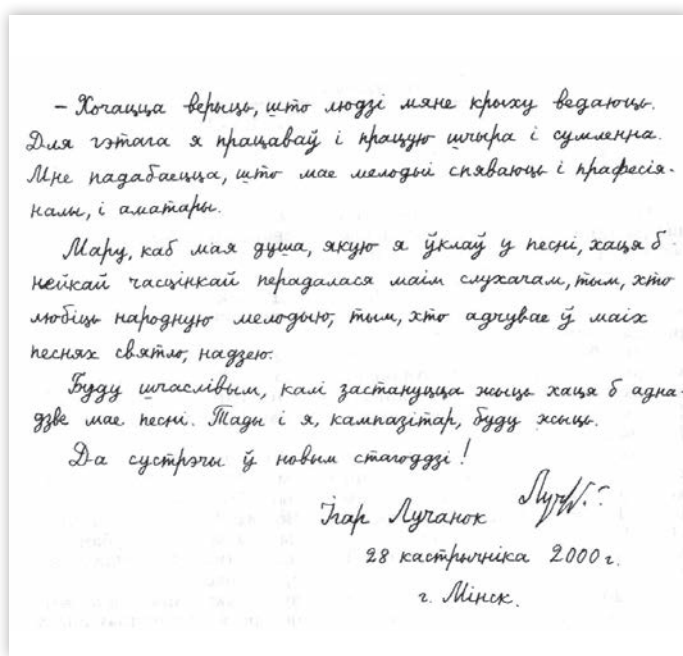 – Хочацца верыць, што людзі мяне крыху ведаюць.
Для гэтага я працаваў і працую шчыра і сумленна.
Мне падабаецца, што мае мелодыі спяваюць і прафесія-
налы, і аматары.
Мару, каб мая душа, якую я ўклаў у песні, хаця б
нейкай часцінкай перадалася маім слухачам, тым, хто
любіць народную мелодыю, тым, хто адчувае ў маіх
песнях святло, надзею.
Буду шчаслівым, калі застануцца жыць хаця б адна-
дзве мае песні. Тады і я, кампазітар, буду жыць.
Да сустрэчы ў новым стагоддзі!
Ігар Лучанок
28 кастрычніка 2000 г.
г. Мінск.